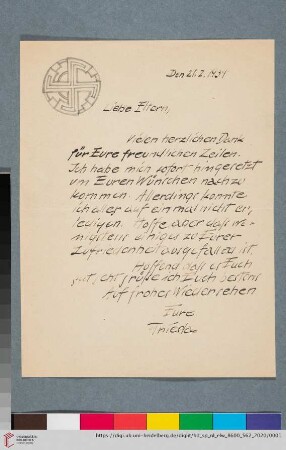 Den 21.2.1939
Liebe Eltern,
Vielen herzlichen Dank
für Eure freundlichen Zeilen.
Ich habe mich sofort hingesetzt
um Euren Wünschen nachzu
kommen. Allerdings konnte
ich aller auf einmal nicht er,
ledigen. Hoffe aber daß we-
nigstens einiges zu Eurer
Zufriedenheit ausgefallen ist.
Hoffend daß es Euch
gut geht grüße ich Euch bestens
Auf frohes Wiedersehen
Eure
https://digi.ub.uni-heidelberg.de/diglit/